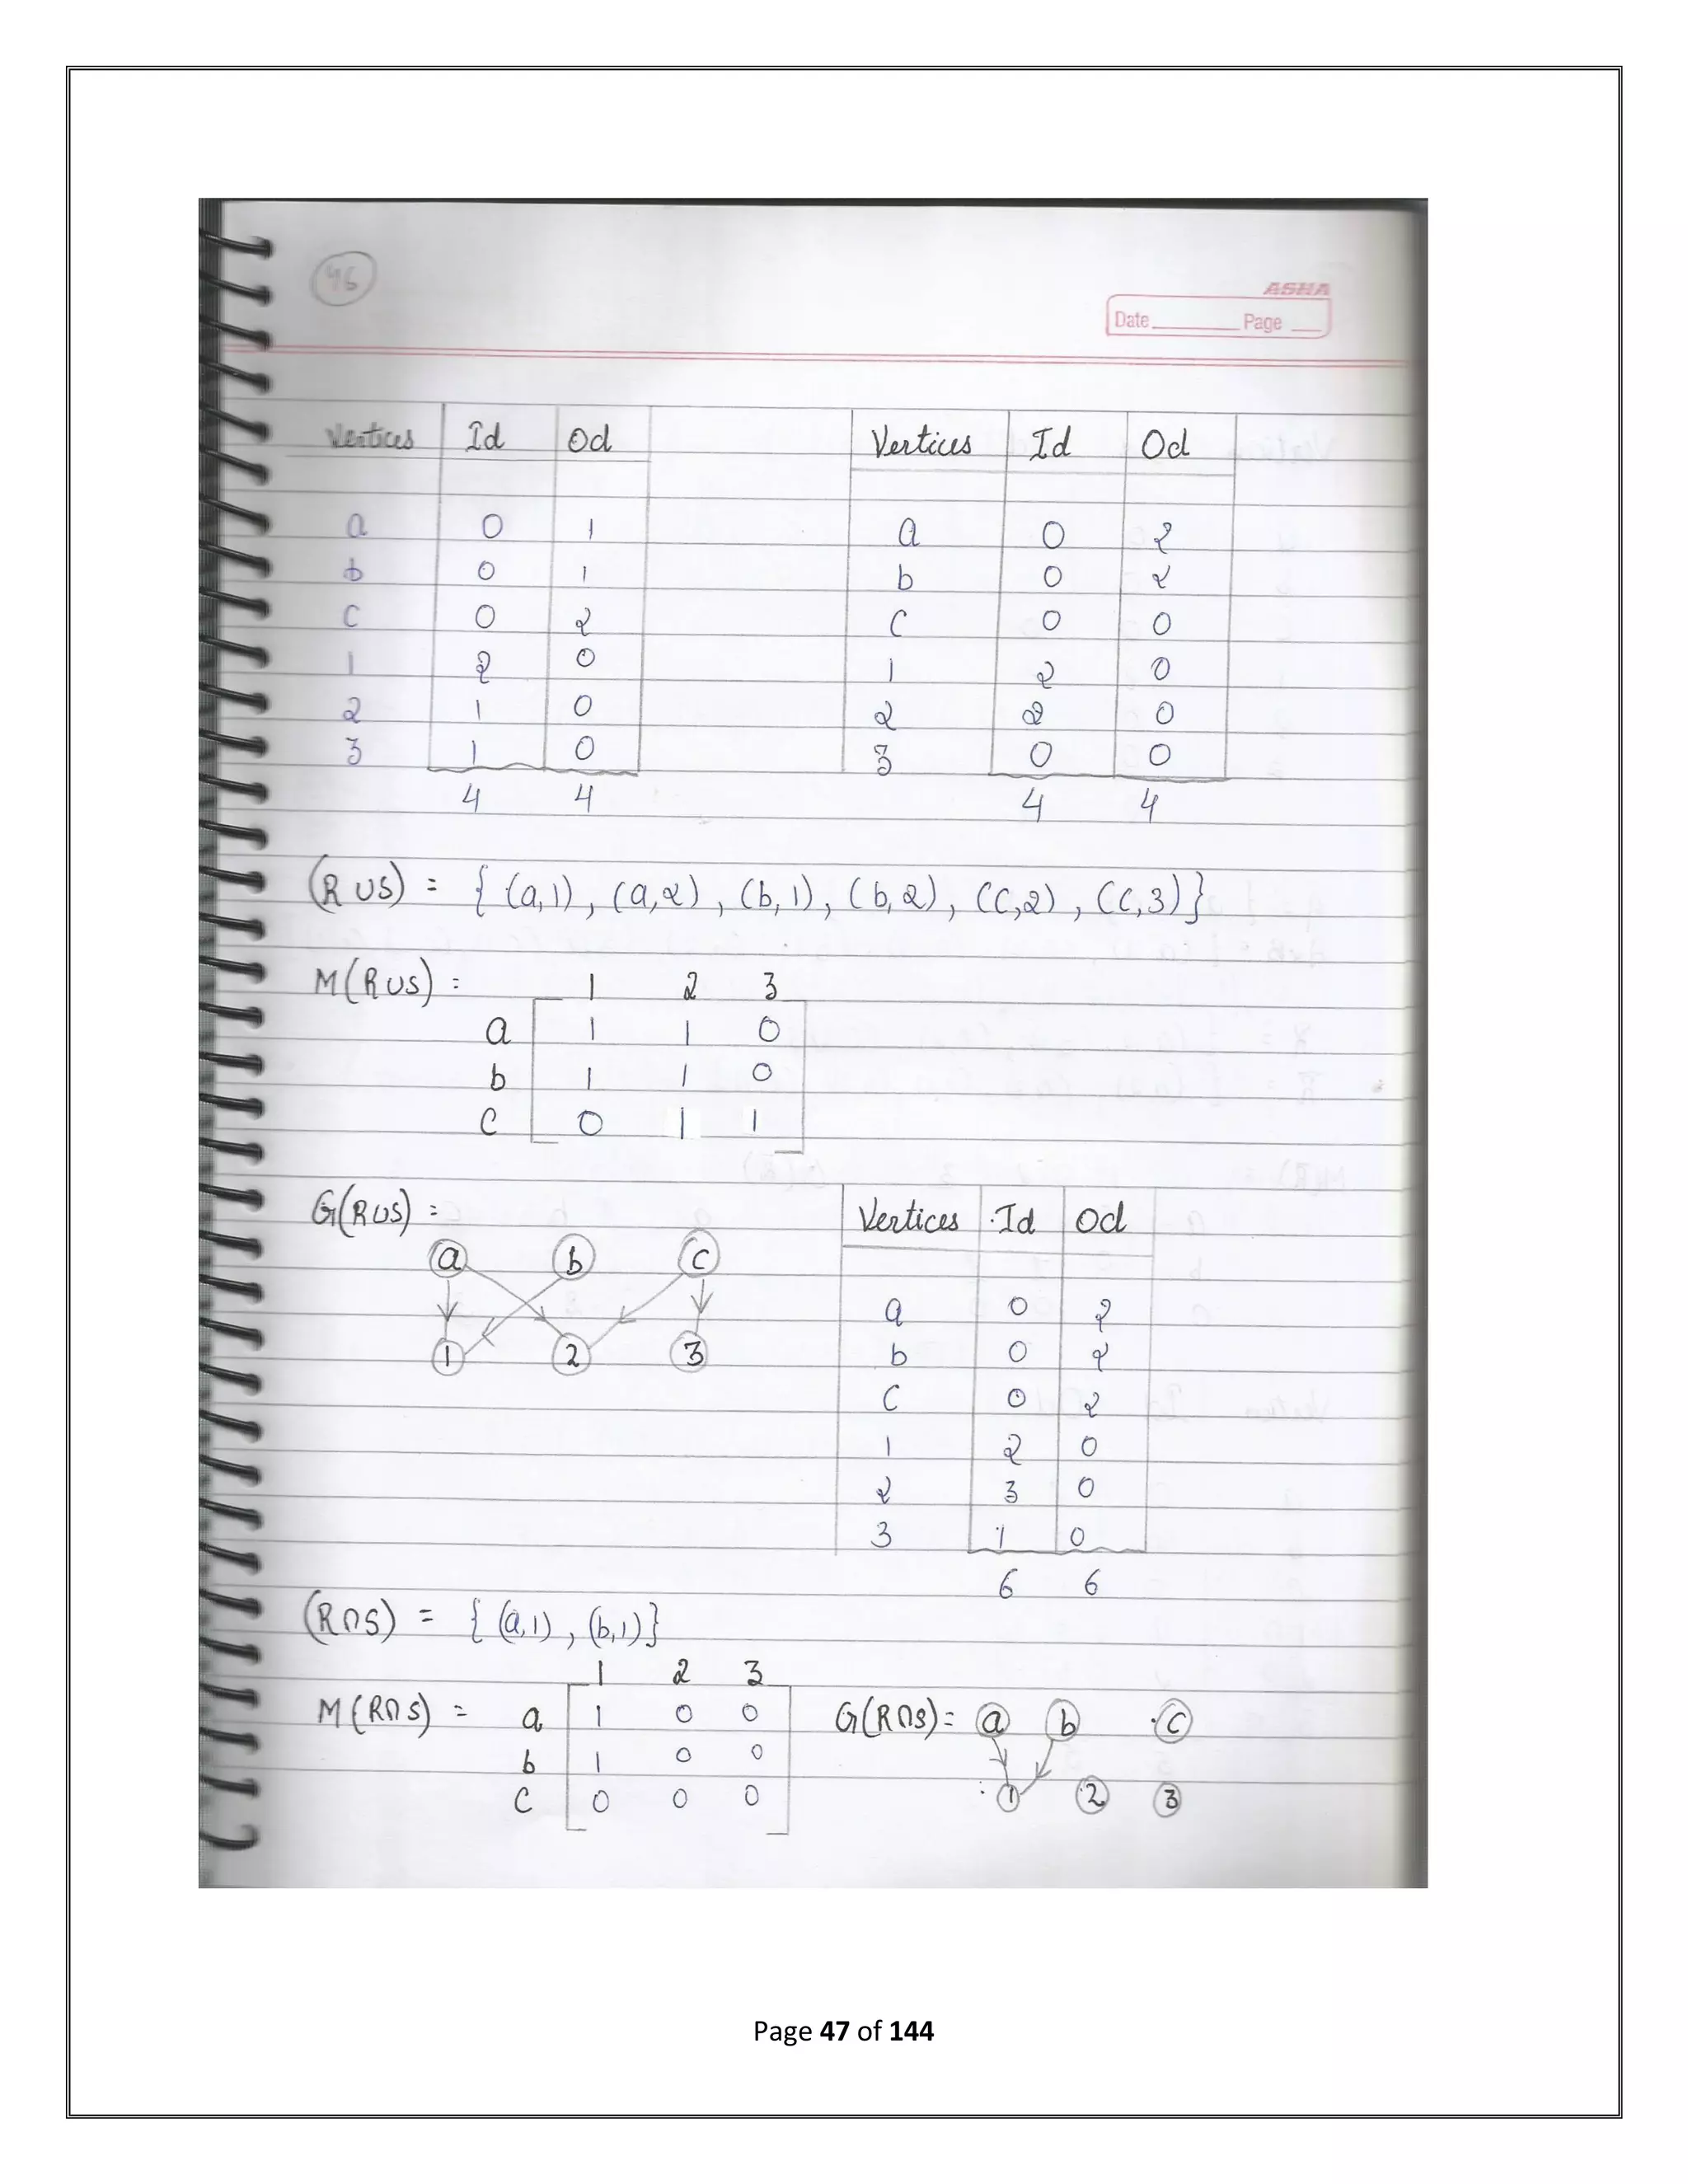 46
ASHA
Date Page
Vertices Id Od
a 0 1
b 0 1
c 0 2
1 2 0
2 1 0
3 1 0
4 4
Vertices Id Od
a 0 2
b 0 2
c 0 0
1 2 0
2 2 0
3 0 0
4 4
(R∪S) = { (a,1), (a,2), (b,1), (b,2), (c,2), (c,3)}
M(R∪S) = 1 2 3
a 1 1 0
b 1 1 0
c 0 1 1
G(R∪S) =
a b c
1 2 3
Vertices Id Od
a 0 2
b 0 2
c 0 2
1 2 0
2 3 0
3 1 0
6 6
(R∩S) = { (a,1), (b,1)}
1 2 3
M(R∩S) = a 1 0 0
b 1 0 0
c 0 0 0
G(R∩S) = a b c
1 2 3
Page 47 of 144